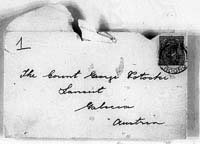 1
The Count George Potocki
Lancut
Galicia
Austria